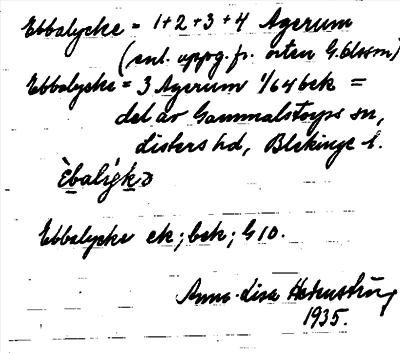 Ebbalycke = 1+2+3+4 Agerum
(enl. uppg. fr. orten G. Olsson)
Ebbalycke = 3 Agerum 1/64 bek =
del av Gammalstorps sn,
Listers hd, Blekinge l.
Ebbalycke ek; bek; G10.
Anna-Lisa Hedenström
1935.